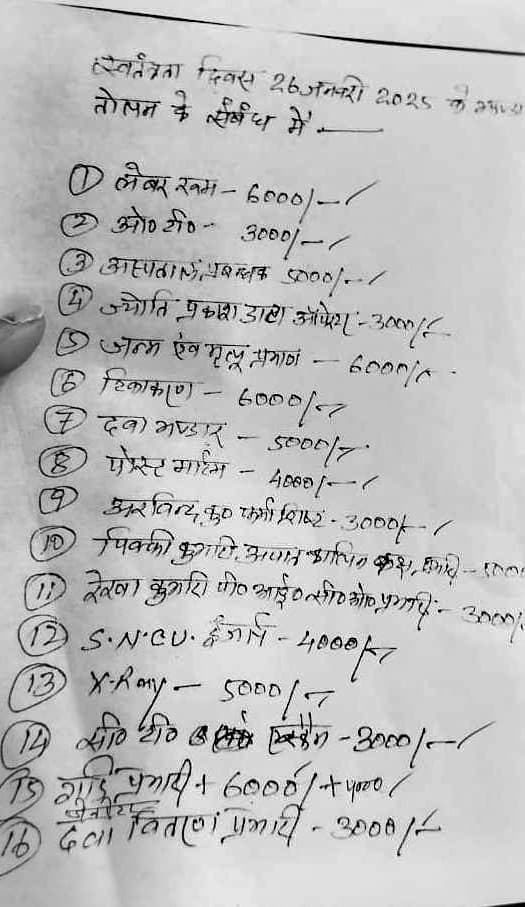 स्वतंत्रता दिवस 26 जनवरी 2025 के
तोलन के संबंध में —
① लेबर रूम - 6000/-
② ओ० टी० - 3000/-
③ अस्पताल प्रबन्धक 5000/-
④ ज्योति प्रकाश डाटा ऑपरेटर - 3000/-
⑤ जन्म एंव मृत्यू प्रमाण - 6000/-
⑥ टिकाकरण - 6000/-
⑦ दवा भण्डार - 5000/-
⑧ पोस्ट मार्टम - 4000/-
⑨ अरविन्द कु० - 3000/-
⑩ पिंक्की कुमारी, कक्ष प्रभारी -
⑪ रेखा कुमारी पी० आई० सी० ओ० प्रभारी - 3000/
⑫ S.N.C.U. इंचार्ज - 4000/-
⑬ X-Ray - 5000/-
⑭ सी० टी० स्कैन - 3000/-
⑮ गार्ड प्रभारी + 6000/ + 4000/
⑯ दवा वितरण प्रभारी - 3000/-